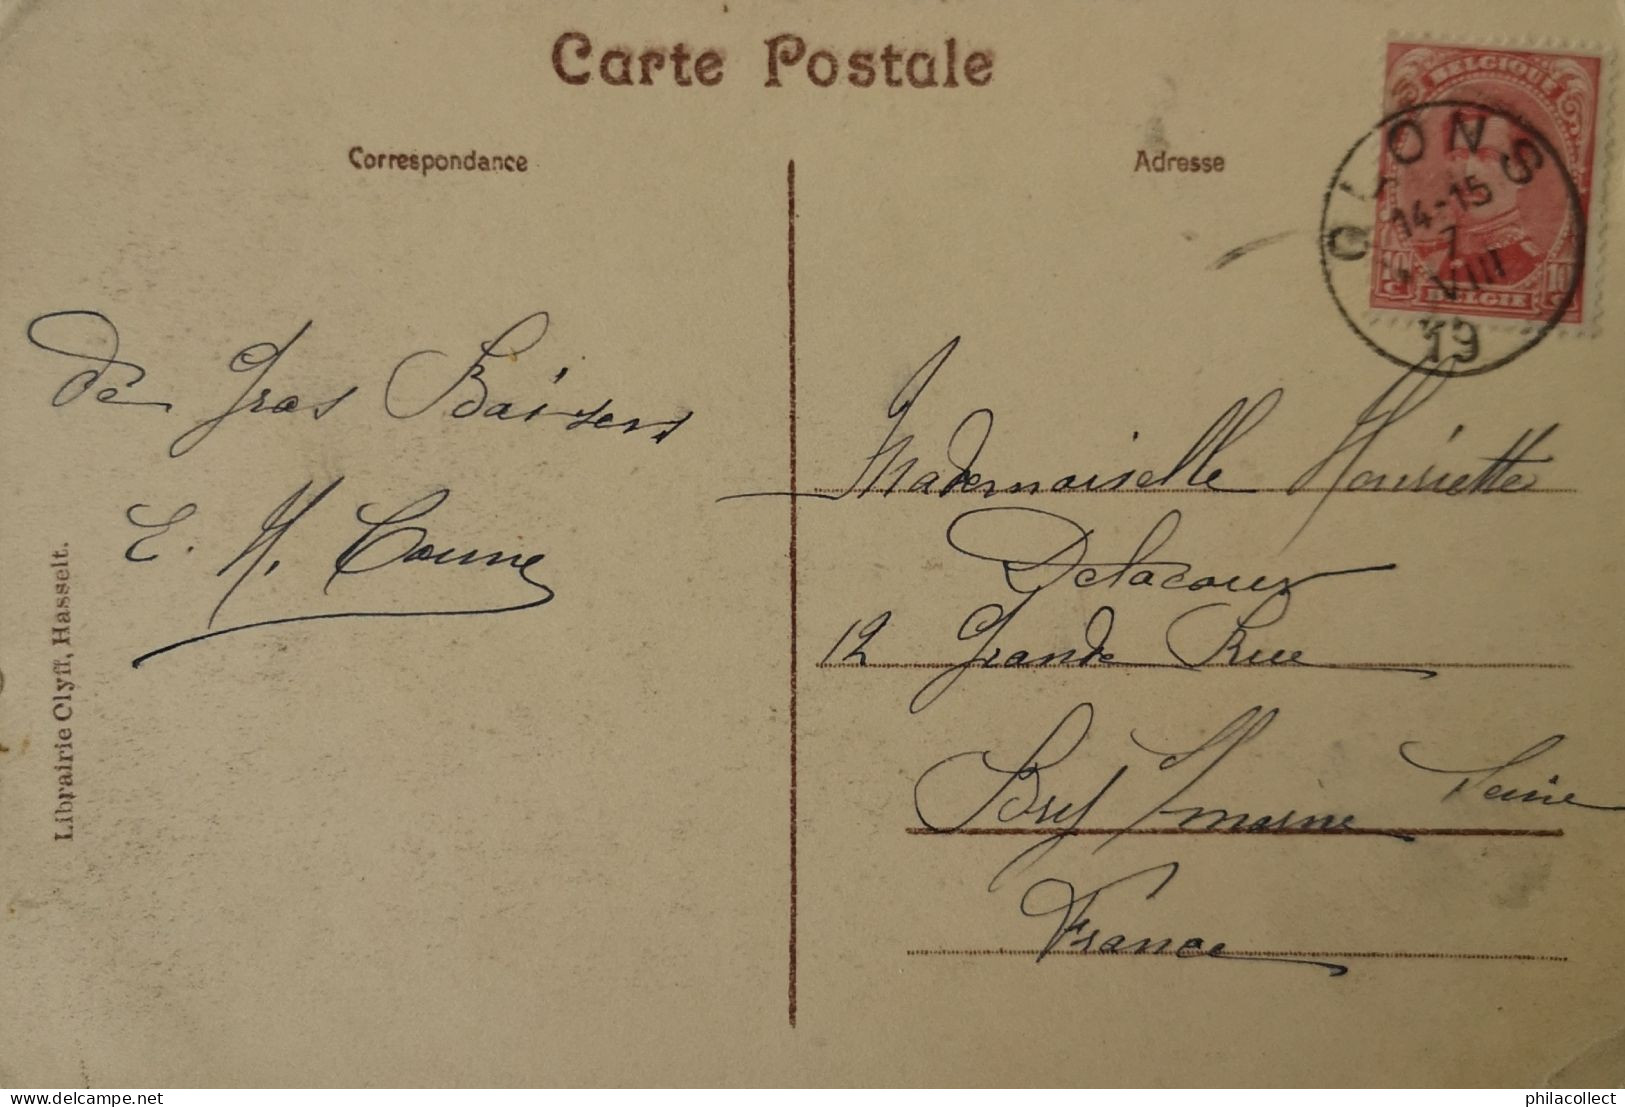 Carte Postale
Correspondance
Adresse
BELGIQUE
10 C
10 C
BELGIE
OLONS
14-15
7
VIII
19
de Gros Baisers
E. H. Coune
Librairie Clyff, Hasselt.
Mademoiselle Henriette
Delacour
12 Grande Rue
Bry s/ marne Seine
France
delcampe.net
philacollect